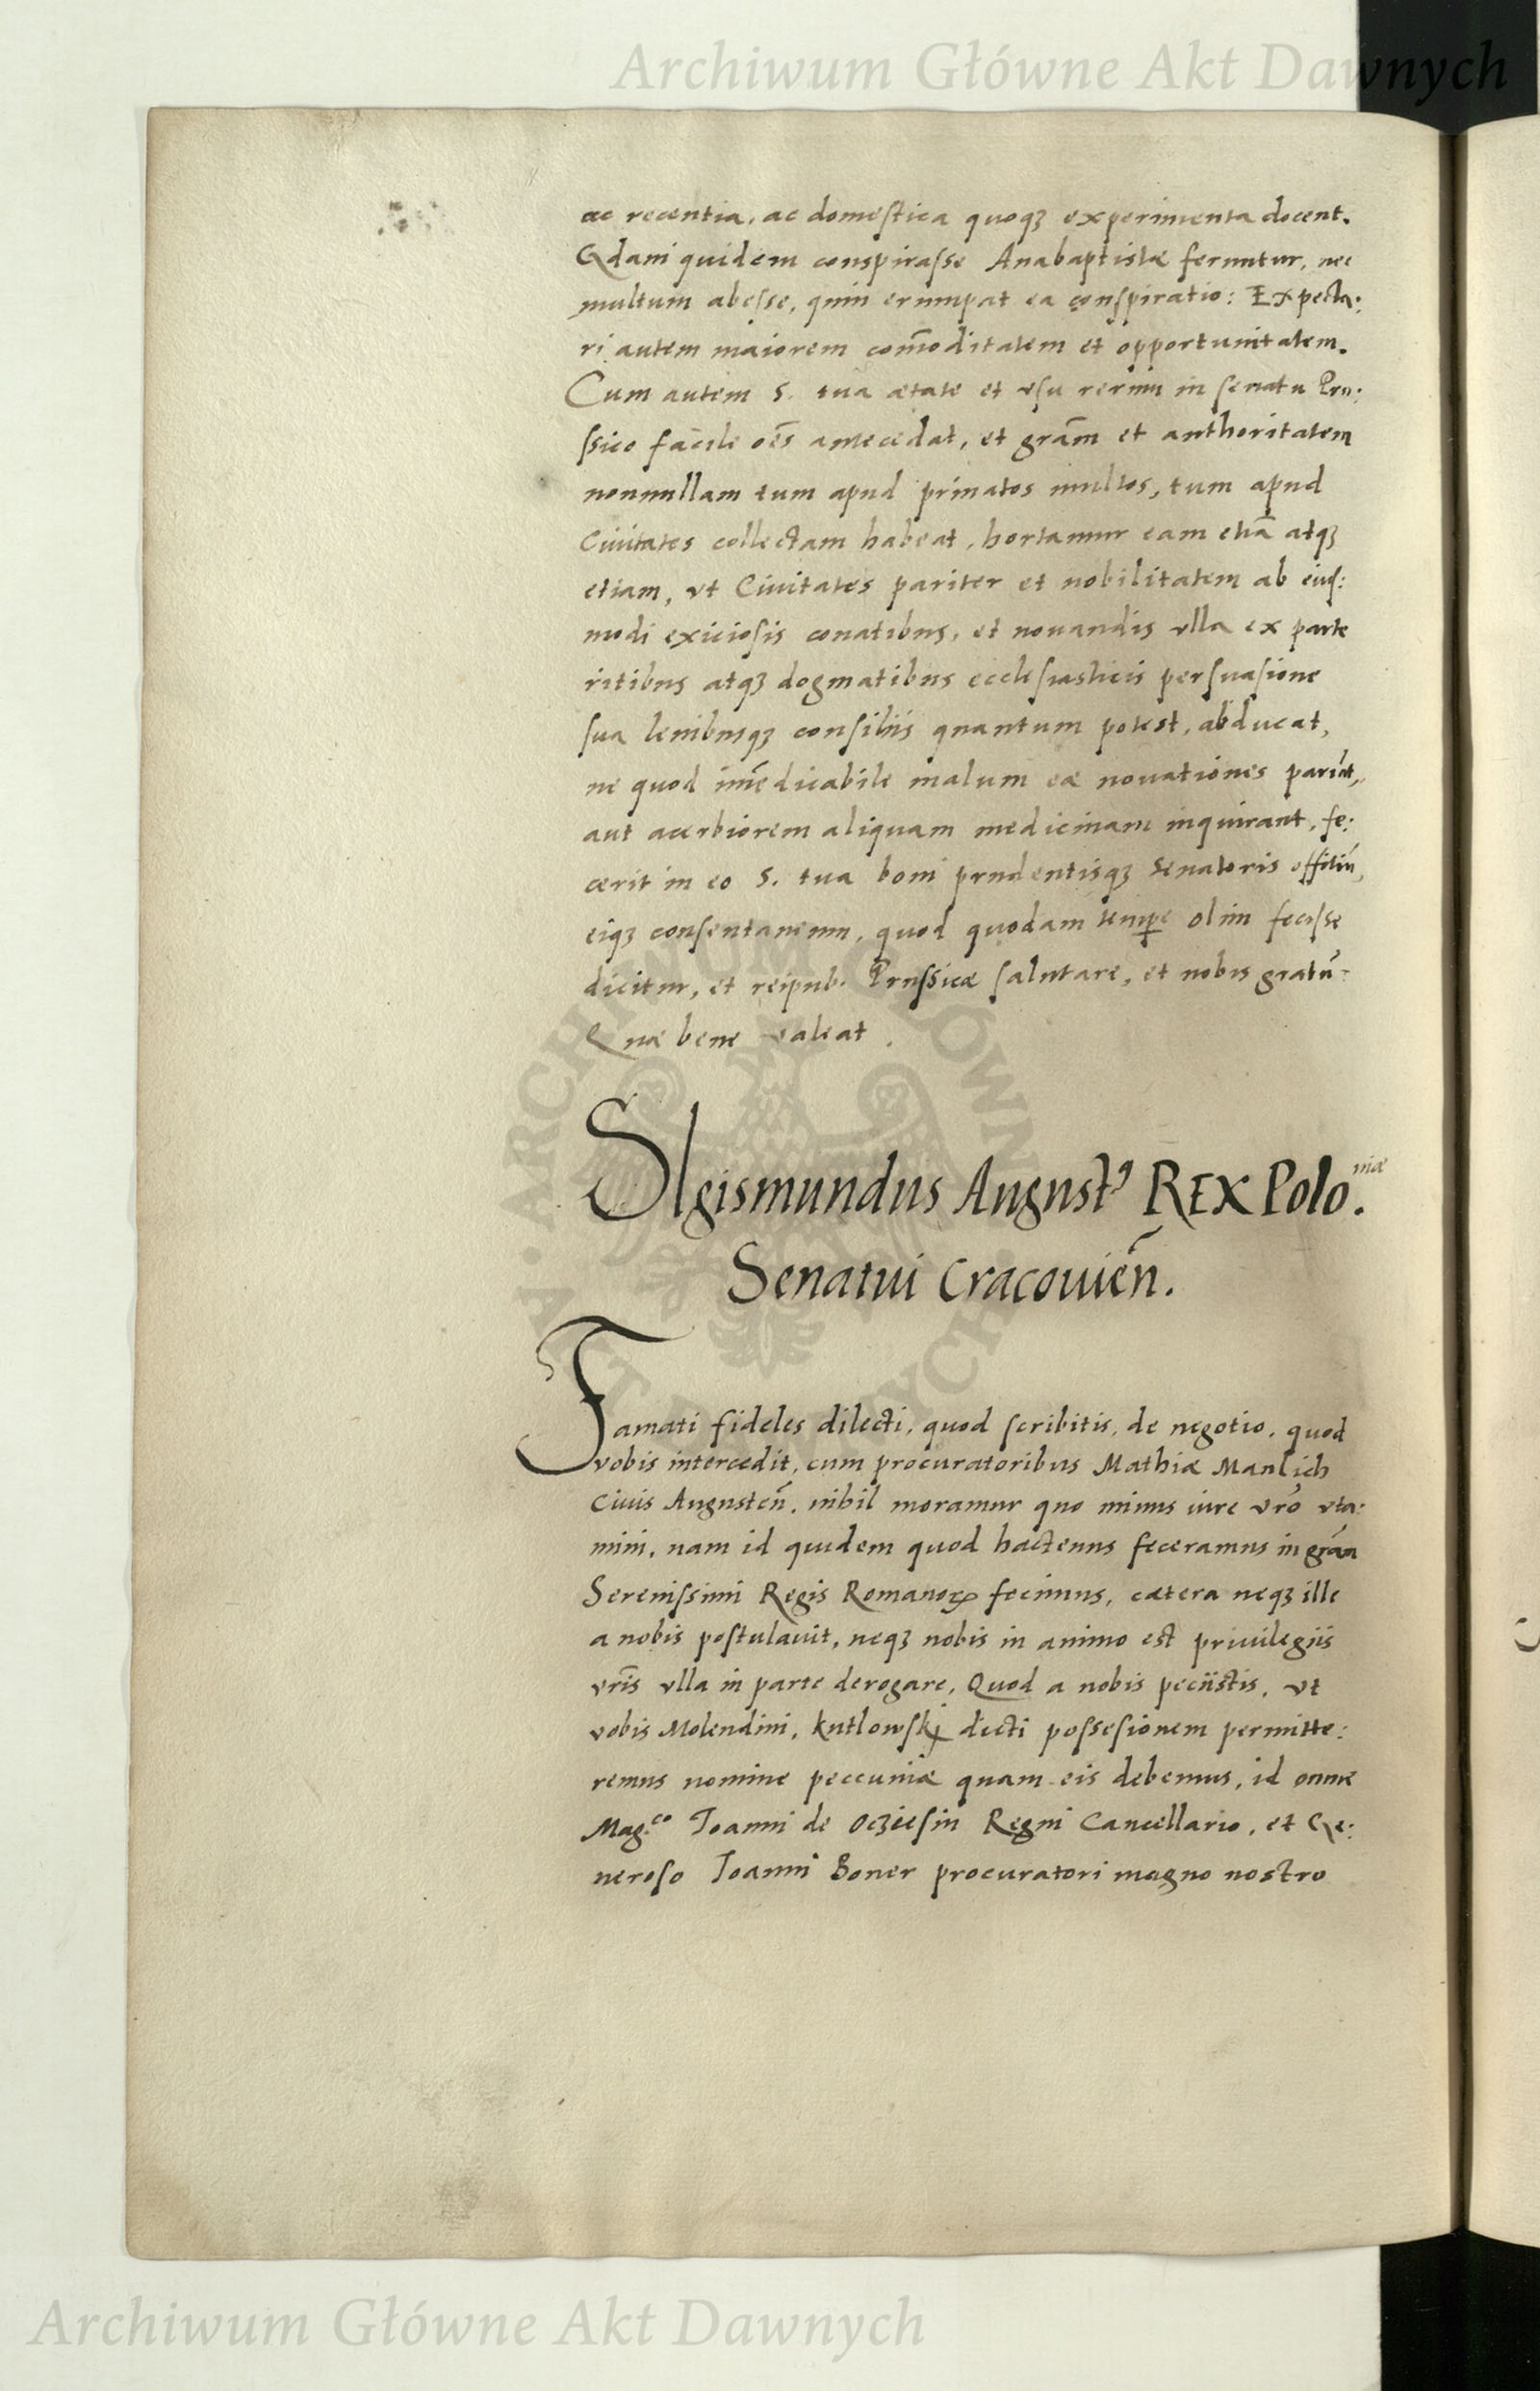 Archiwum Główne Akt Dawnych
ac recentia, ac domestica quoqꝫ experimenta docent.
Qdam quidem conspirasse Anabaptistæ feruntur, nec
multum abesse, quin erumpat ea conspiratio: Expecta:
ri autem maiorem com̄oditatem et opportunitatem.
Cum autem S. tua ætate et vsu rerum in senatu Pru:
ssico facile oēs antecedat, et grām et authoritatem
nonnullam tum apud priuatos multos, tum apud
Ciuitates collectam habeat, hortamur eam etiā atqꝫ
etiam, vt Ciuitates pariter et nobilitatem ab eius:
modi exiciosis conatibus, et nouandis vlla ex parte
ritibus atqꝫ dogmatibus ecclesiasticis persuasione
sua lenibusqꝫ consiliis quantum potest, abducat,
ne quod im̄edicabile malum eæ nouationes pariāt,
aut acerbiorem aliquam medicinam inquirant, fe:
cerit in eo S. tua boni prudentisqꝫ senatoris offitiū,
eiqꝫ consentaneum, quod quodam tempꝫ olim fecisse
dicitur, et reipub. Prussicæ salutare, et nobis gratū.
Quæ bene valeat.
SIgismundus August⁹ REX Polo.niæ
Senatui Cracouień.
Famati fideles dilecti, quod scribitis, de negotio, quod
vobis intercedit, cum procuratoribus Mathiæ Manlich
Ciuis Augusteń. nihil moramur quo minus iure vr̄o vta:
mini, nam id quidem quod hactenus feceramus in grām
Serenissimi Regis Romanoꝝ fecimus, cætera neqꝫ ille
a nobis postulauit, neqꝫ nobis in animo est priuilegiis
vr̄is vlla in parte derogare, Quod a nobis peciistis, vt
vobis Molendini, kutlowskj dicti possesionem permitte:
remus nomine peccuniæ quam eis debemus, id omne
Mag.co Joanni de Ocziesin Regni Cancellario, et Ge:
neroso Joanni Boner procuratori magno nostro
Archiwum Główne Akt Dawnych